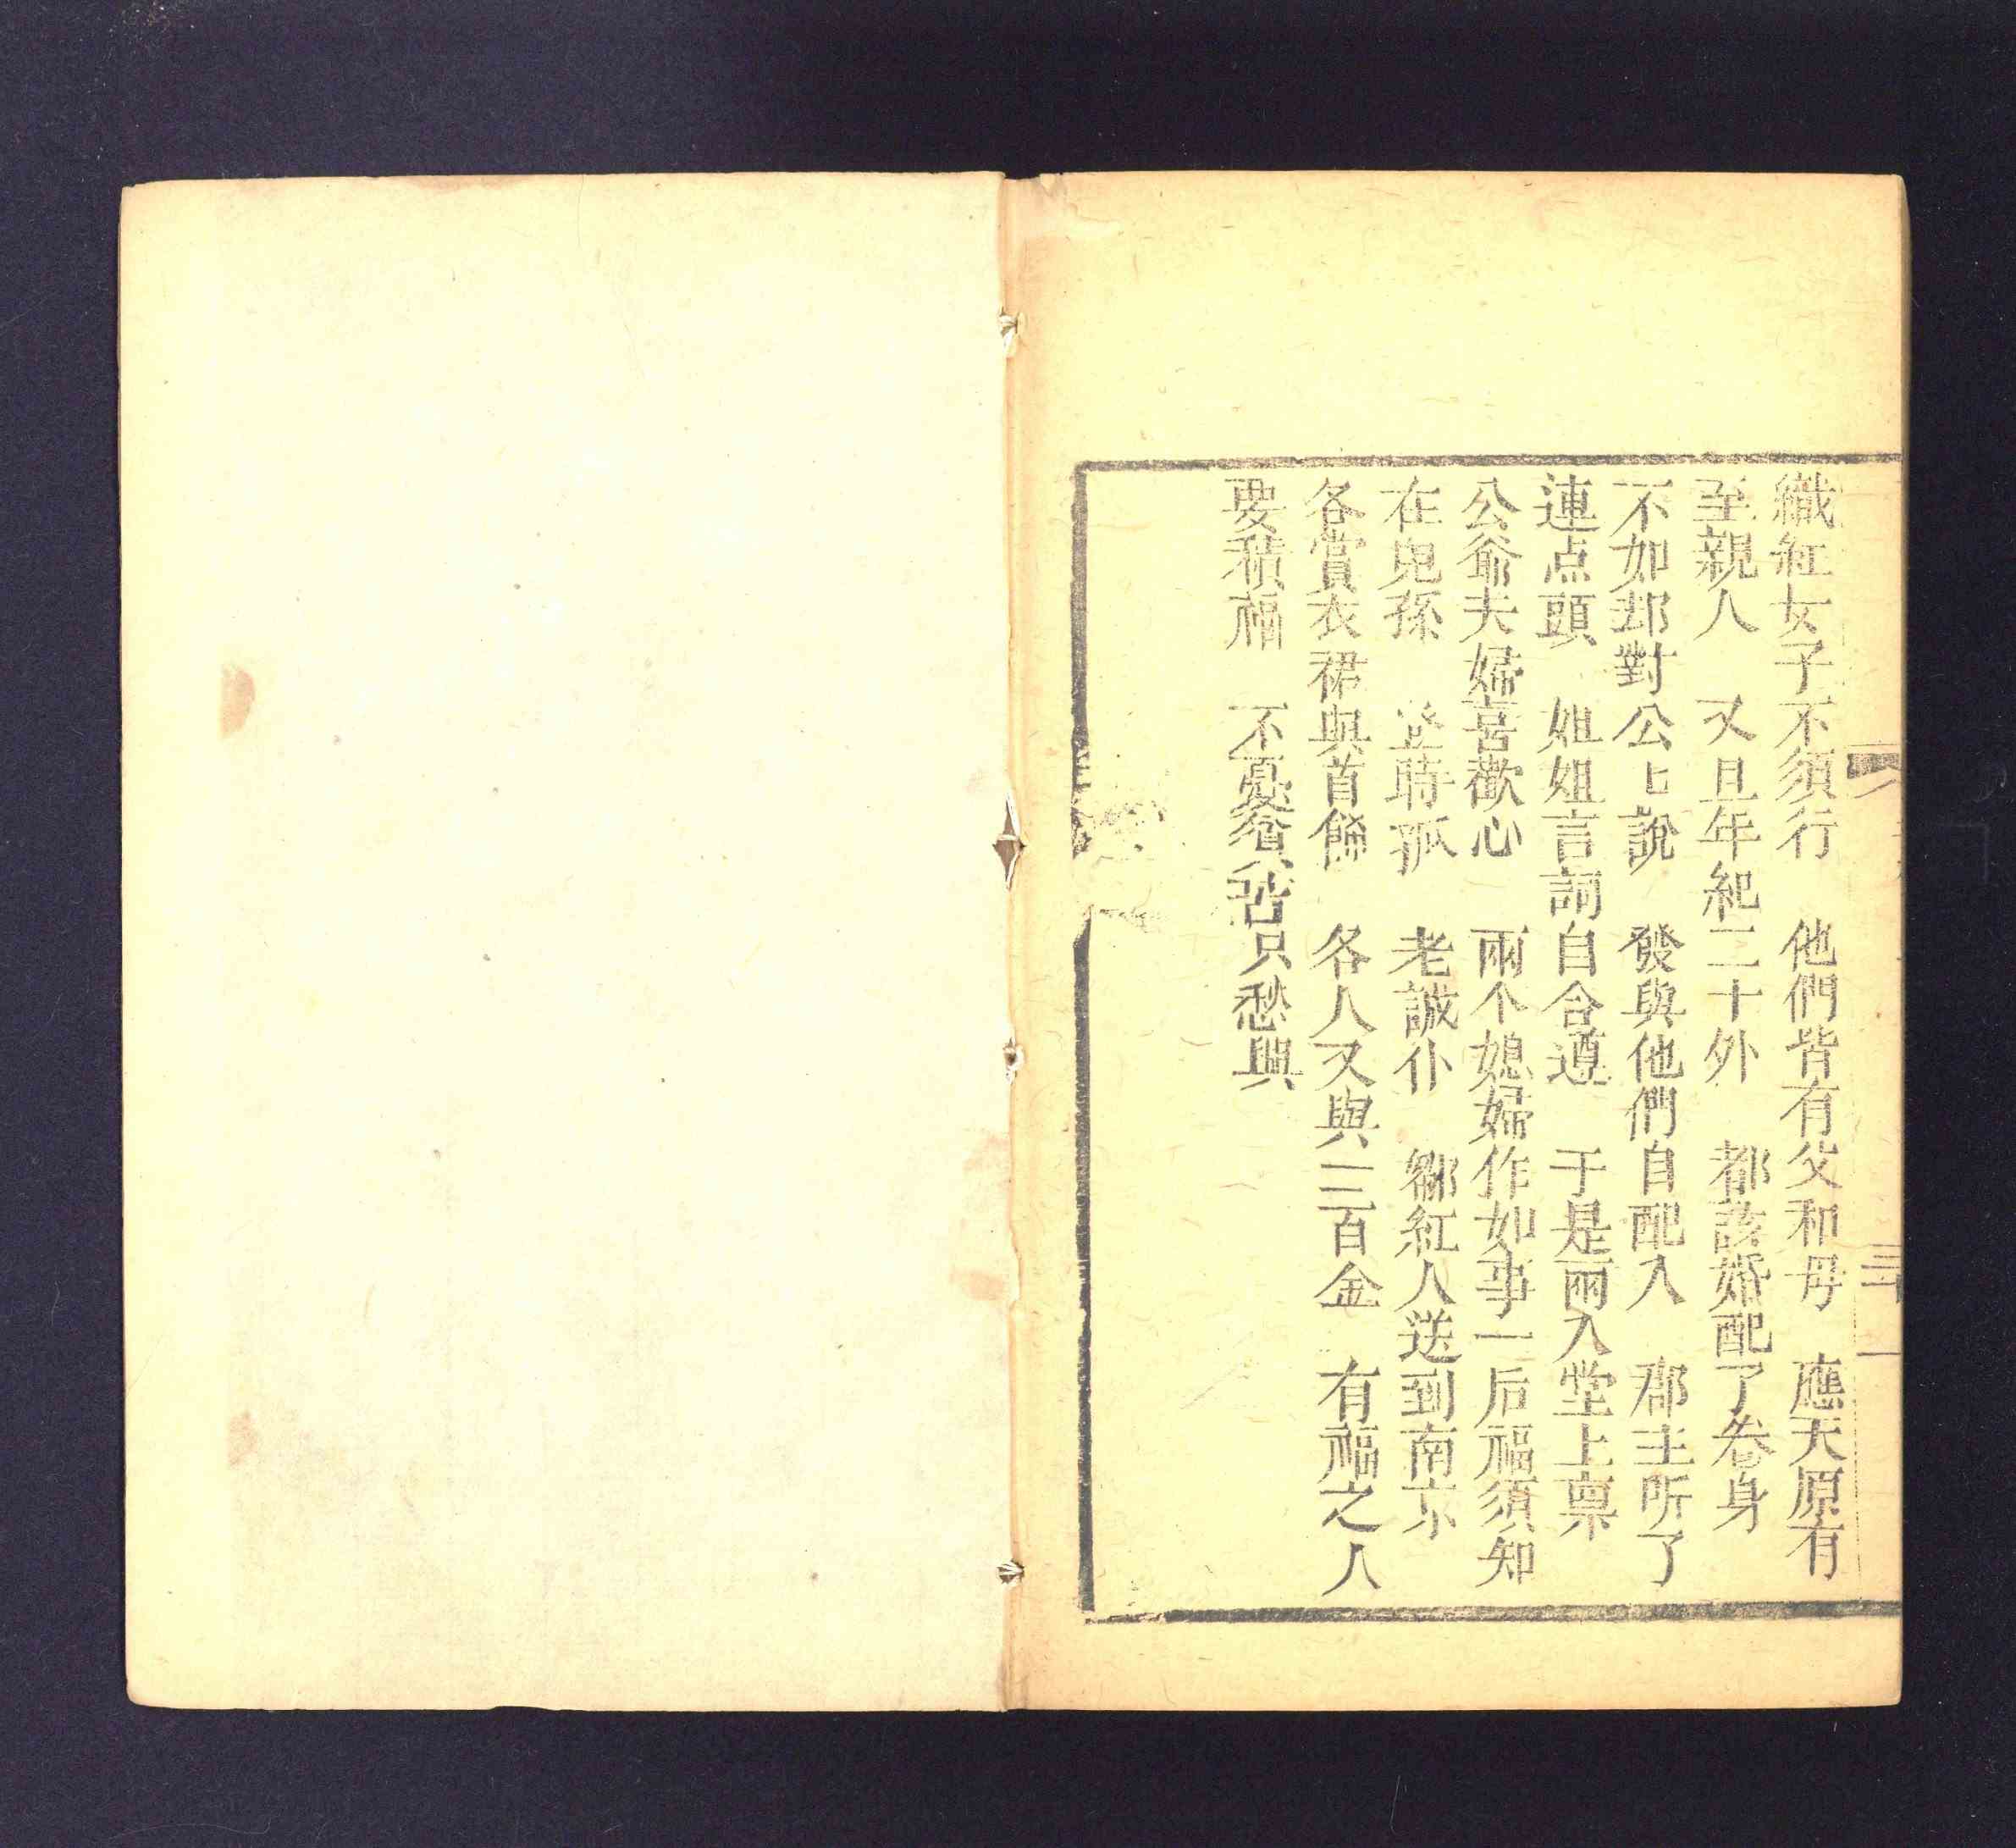 織紅女子不須行　他們皆有父和母　應天原有
至親人　又且年紀二十外　都該婚配了卷身
不如却對公上說　發與他們自配人　郡主所了
連点頭　姐姐言詞自合遵　于是兩人堂上禀
公爺夫婦喜歡心　兩个媳婦作如事　后福須知
在兒孫　登時孤　老誠仆　鄒紅人送到南京
各賞衣裙與首餙　各人又與二百金　有福之人
要積福　不憂貧苦只愁與
三十一